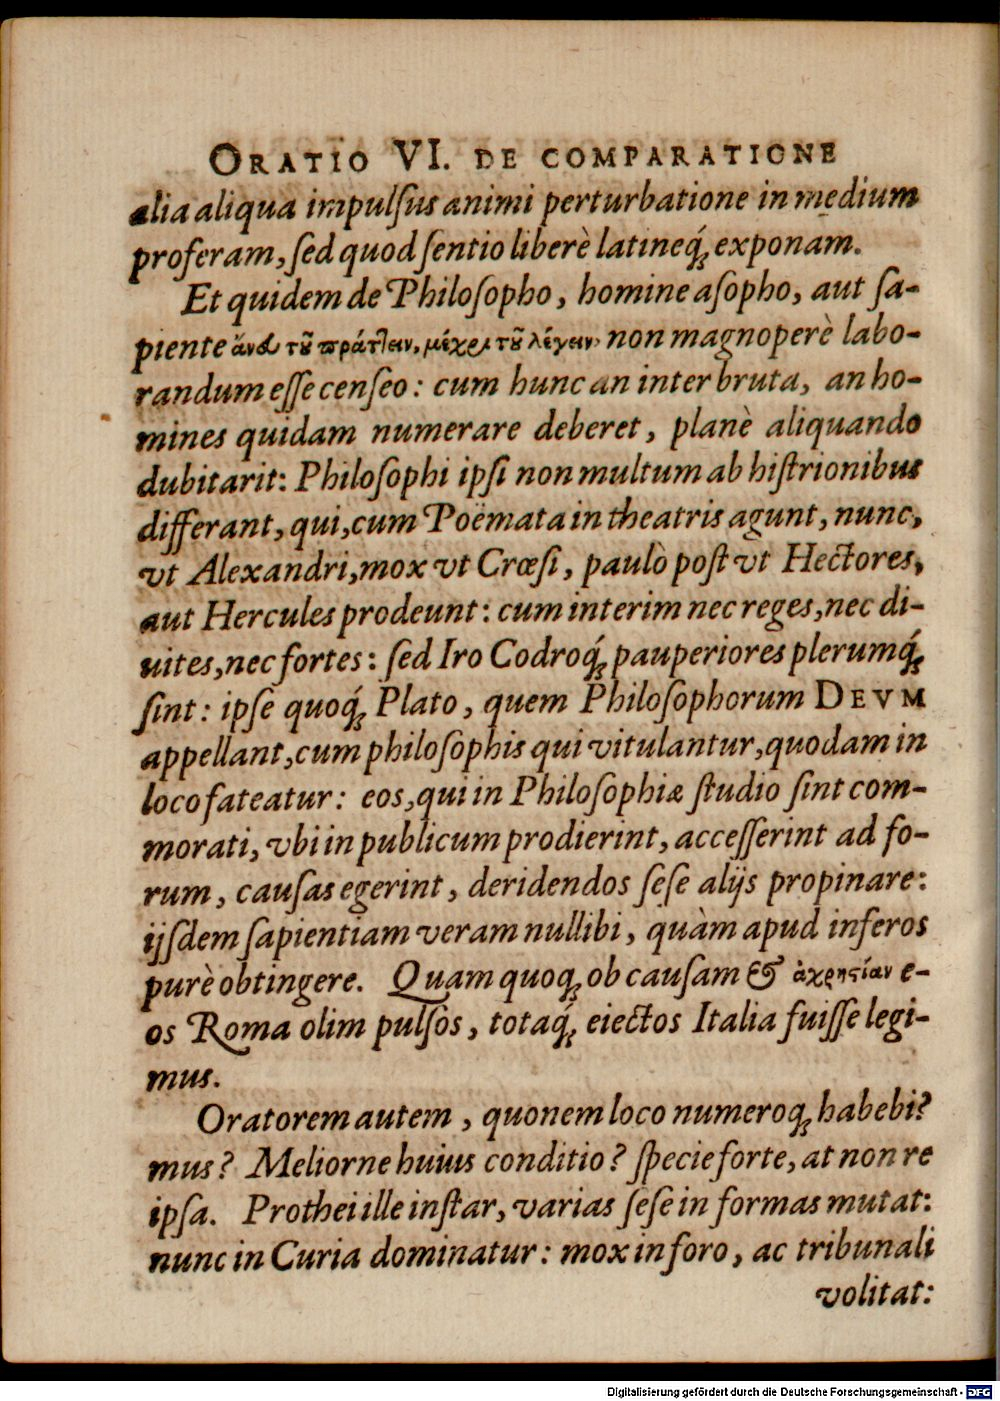 ORATIO VI. DE COMPARATIONE
alia aliqua impulſus animi perturbatione in medium
proferam, ſed quod ſentio liberè latineq́ꝫ exponam.
Et quidem de Philoſopho, homine aſopho, aut ſa-
piente ἄνευ τοῦ πράτλειν, μέχρι τοῦ λέγειν, non magnoperè labo-
randum eſſe cenſeo: cum hunc an inter bruta, an ho-
mines quidam numerare deberet, planè aliquando
dubitarit: Philoſophi ipſi non multum ab hiſtrionibus
differant, qui, cum Poëmata in theatris agunt, nunc,
vt Alexandri, mox vt Crœſi, paulò poſt vt Hectores,
aut Hercules prodeunt: cum interim nec reges, nec di-
uites, nec fortes: ſed Iro Codroq́ꝫ pauperiores plerumq́ꝫ
ſint: ipſe quoq́ꝫ Plato, quem Philoſophorum DEVM
appellant, cum philoſophis qui vitulantur, quodam in
loco fateatur: eos, qui in Philoſophiæ ſtudio ſint com-
morati, vbi in publicum prodierint, acceſſerint ad fo-
rum, cauſas egerint, deridendos ſeſe alijs propinare:
ijſdem ſapientiam veram nullibi, quàm apud inferos
purè obtingere. Quam quoqꝫ ob cauſam & ἀχρηστίαν e-
os Roma olim pulſòs, totaq́ꝫ eiectos Italia fuiſſe legi-
mus.
Oratorem autem, quonem loco numeroqꝫ habebi?
mus? Meliorne huius conditio? ſpecie forte, at non re
ipſa. Prothei ille inſtar, varias ſeſe in formas mutat:
nunc in Curia dominatur: mox in foro, ac tribunali
volitat:
Digitalisierung gefördert durch die Deutsche Forschungsgemeinschaft - DFG